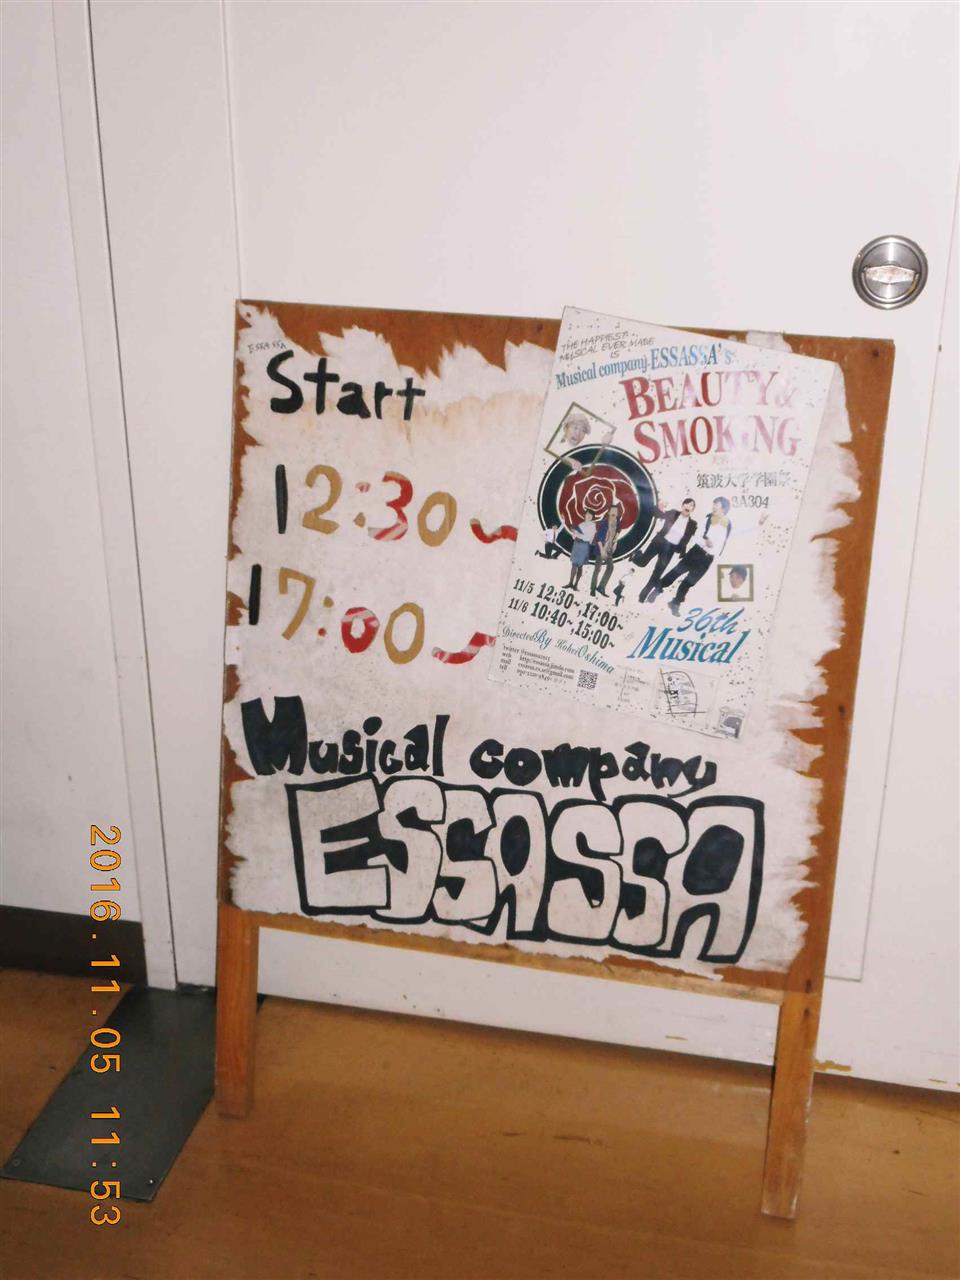 ESSASSA
Start
12:30~
17:00~
Musical company
ESSASSA
THE HAPPIEST
MUSICAL EVER MADE
IS
Musical company ESSASSA's
BEAUTY&
SMOKING
筑波大学学園祭
3A304
11/5 12:30~,17:00~
11/6 10:40~,15:00~
Directed By Kohei Oshima
36th
Musical
2016.11.05 11:53